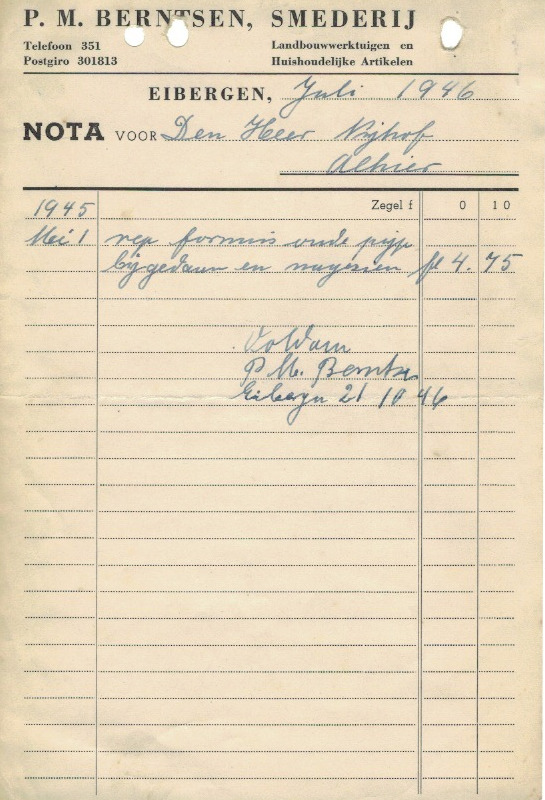 P. M. BERNTSEN, SMEDERIJ
Telefoon 351
Postgiro 301813
Landbouwwerktuigen en
Huishoudelijke Artikelen
EIBERGEN, Juli 1946
NOTA VOOR Den Heer Nijhof
Alhier
1945 Zegel f 0 10
Mei 1 rep fornuis oude pijp
bijgedaan en nagezien fl 4.75
Voldaan
P M. Berntsen
Eibergen 21 10 46